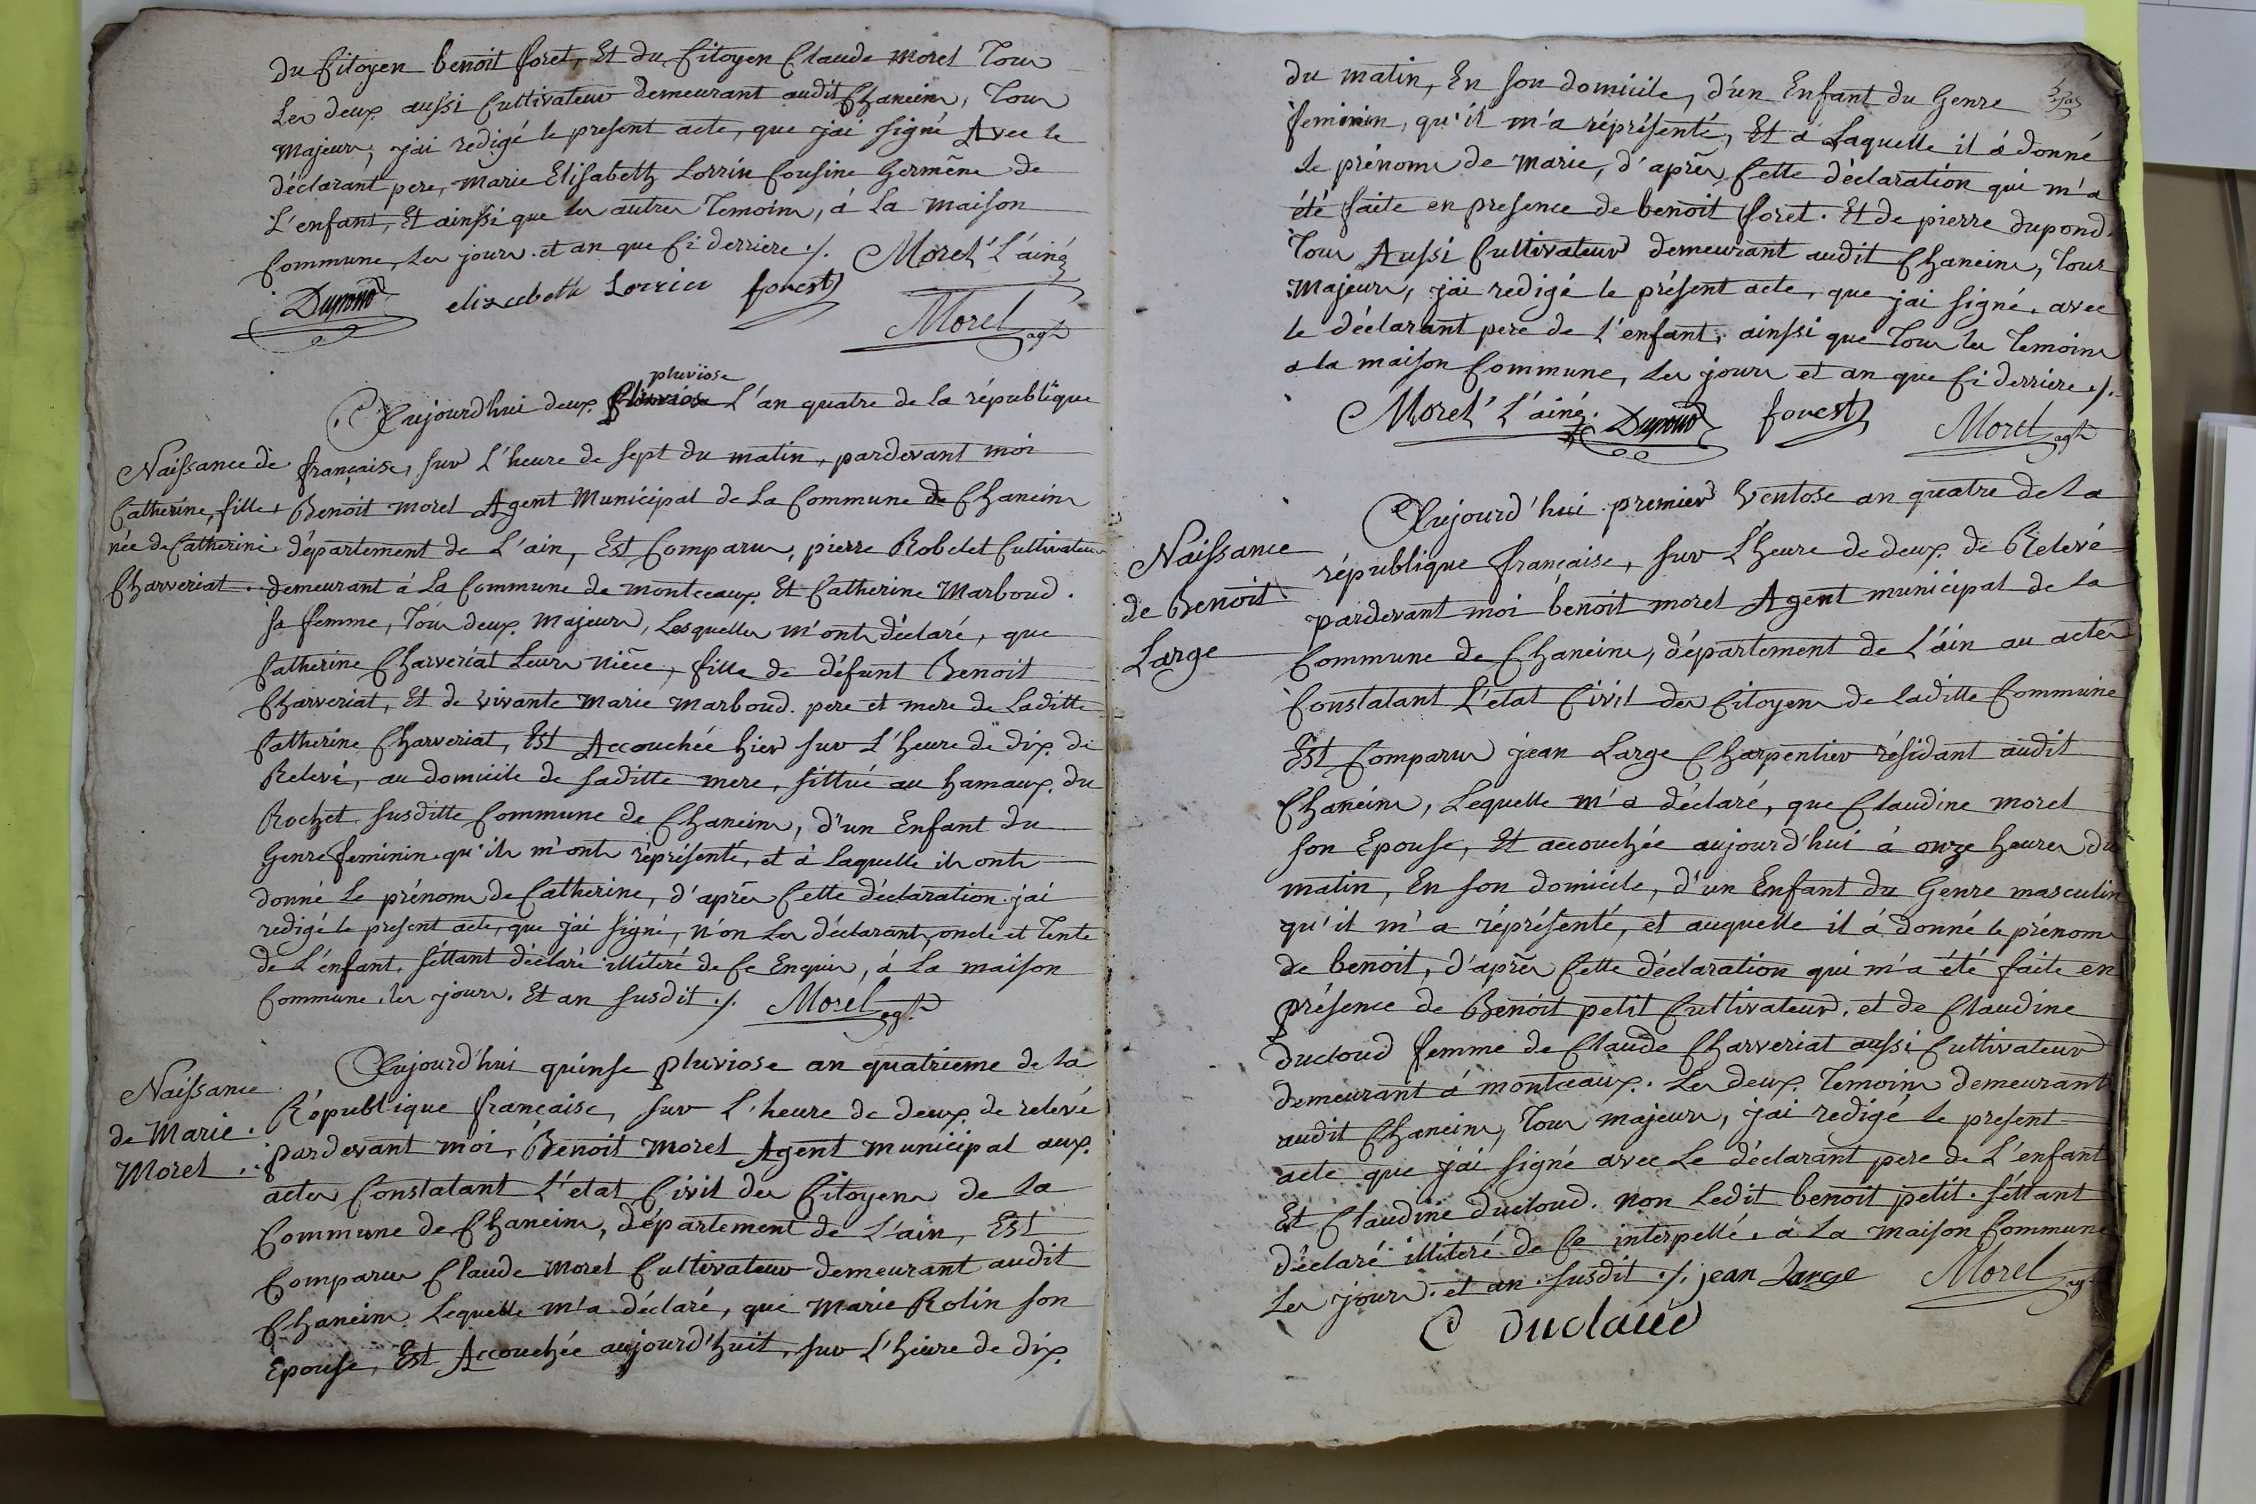 du Citoyen benoit foret, Et du Citoyen Claude morel Tous
Les deux aussi Cultivateur demeurant audit Chaneins, Tous
majeurs, j'ai redigé le present acte, que j'ai signé Avec le
déclarant pere, marie Elisabeth Lorrin Cousine Germêne de
L'enfant, Et ainssi que les autres Temoins, á La maison
Commune, les jours et an que Ci derriere ./. Morel L'ainé
Dupond elizabeth Lorrin forest
Morel agt
pluviose
Aujourd'hui deux pluviose L'an quatre de la républïque
Naissance de
Catherine, fille
née de Catherine
Charveriat.
française, sur L'heure de sept du matin, pardevant moi
Benoit morel Agent Municipal de La Commune de Chaneins
département de L'ain, Est Comparus, pierre Robelet Cultivateur
demeurant à La Commune de montceaux Et Catherine Marboud.
sa femme, Tous deux majeurs, Lesquelles m'onts déclaré, que
Catherine Charveriat Leurs niêce, fille de défunt Benoit
Charveriat, Et de vivante Marie Marboud. pere et mere de Laditte
Catherine Charveriat, Est Accouchée hier sur L'heure de dix de
Relevé, au domicile de saditte mere, sittué au hamaux du
Rochet susditte Commune de Chaneins, d'un Enfant du
Genre feminin qu'ils m'onts réprésenté, et á Laquelle ils onts
donné Le prénoms de Catherine, d'aprês Cette déclaration j'ai
redigé le present acte, que j'ai signé, n'on Les déclarants, oncle et Tente
de L'enfant, séttant déclaré illiteré de Ce Enquis, á La maison
Commune, les jours. Et an susdit ./. Morel agt
Naissance
de Marie
Morel
Aujourd'hui quinse pluviose an quatrieme de la
République française, sur L'heure de deux de relevé
pardevant moi, Benoit morel Agent municipal aux
actes Constatant L'etat Civil des Citoyens de la
Commune de Chaneins, département de L'ain, Est
Comparus Claude morel Cultivateur demeurant audit
Chaneins Lequelle m'a déclaré, que marie Rolin son
Epouse, Est Accouchée aujourd'huit, sur L'heure de dix
du matin, En son domicile, d'un Enfant du Genre
feminin, qu'il m'a réprésenté, Et á Laquelle il á donné
le prénoms de marie, d'aprês Cette déclaration qui m'a
été faite en presence de benoit foret. Et de pierre dupond.
Tous Aussi Cultivateur demeurant audit Chaneins, Tous
majeurs, j'ai redigé le présent acte, que j'ai signé, avec
le déclarant pere de L'enfant, ainssi que Tous les Temoins
a la maison Commune, Les jours et an que Ci derriere ./.
Morel L'ainé. Dupond forest Morel agt
Naissance
de Benoit
Large
Aujourd'hui premier Ventose an quatre de la
république française, sur L'heure de deux de Relevé
pardevant moi benoit morel Agent municipal de la
Commune de Chaneins, département de L'ain au actes
Constatant L'etat Civil des Citoyens de laditte Commune
Est Comparus jean Large Charpentier résidant audit
Chaneins, Lequelle m'a déclaré, que Claudine morel
son Epouse, Et accouchée aujourd'hui á onze heures du
matin, En son domicile, d'un Enfant du Genre masculin
qu'il m'a réprésenté, et auquelle il á donné le prénoms
de benoit, d'aprês Cette déclaration qui m'a été faite en
présence de Benoit petit Cultivateur, et de Claudine
ducloud femme de Claude Charveriat aussi Cultivateur
demeurant á montceaux. Les deux Temoins demeurant
audit Chaneins, Tous majeurs, j'ai redigé le present
acte que j'ai signé avec Le déclarant pere de L'enfant
Et Claudine ducloud. non Ledit benoit petit. séttant
déclaré illiteré de Ce interpellé, a La maison Commune
Les jours. et an. susdit ./. jean Large Morel agt
C duclaud